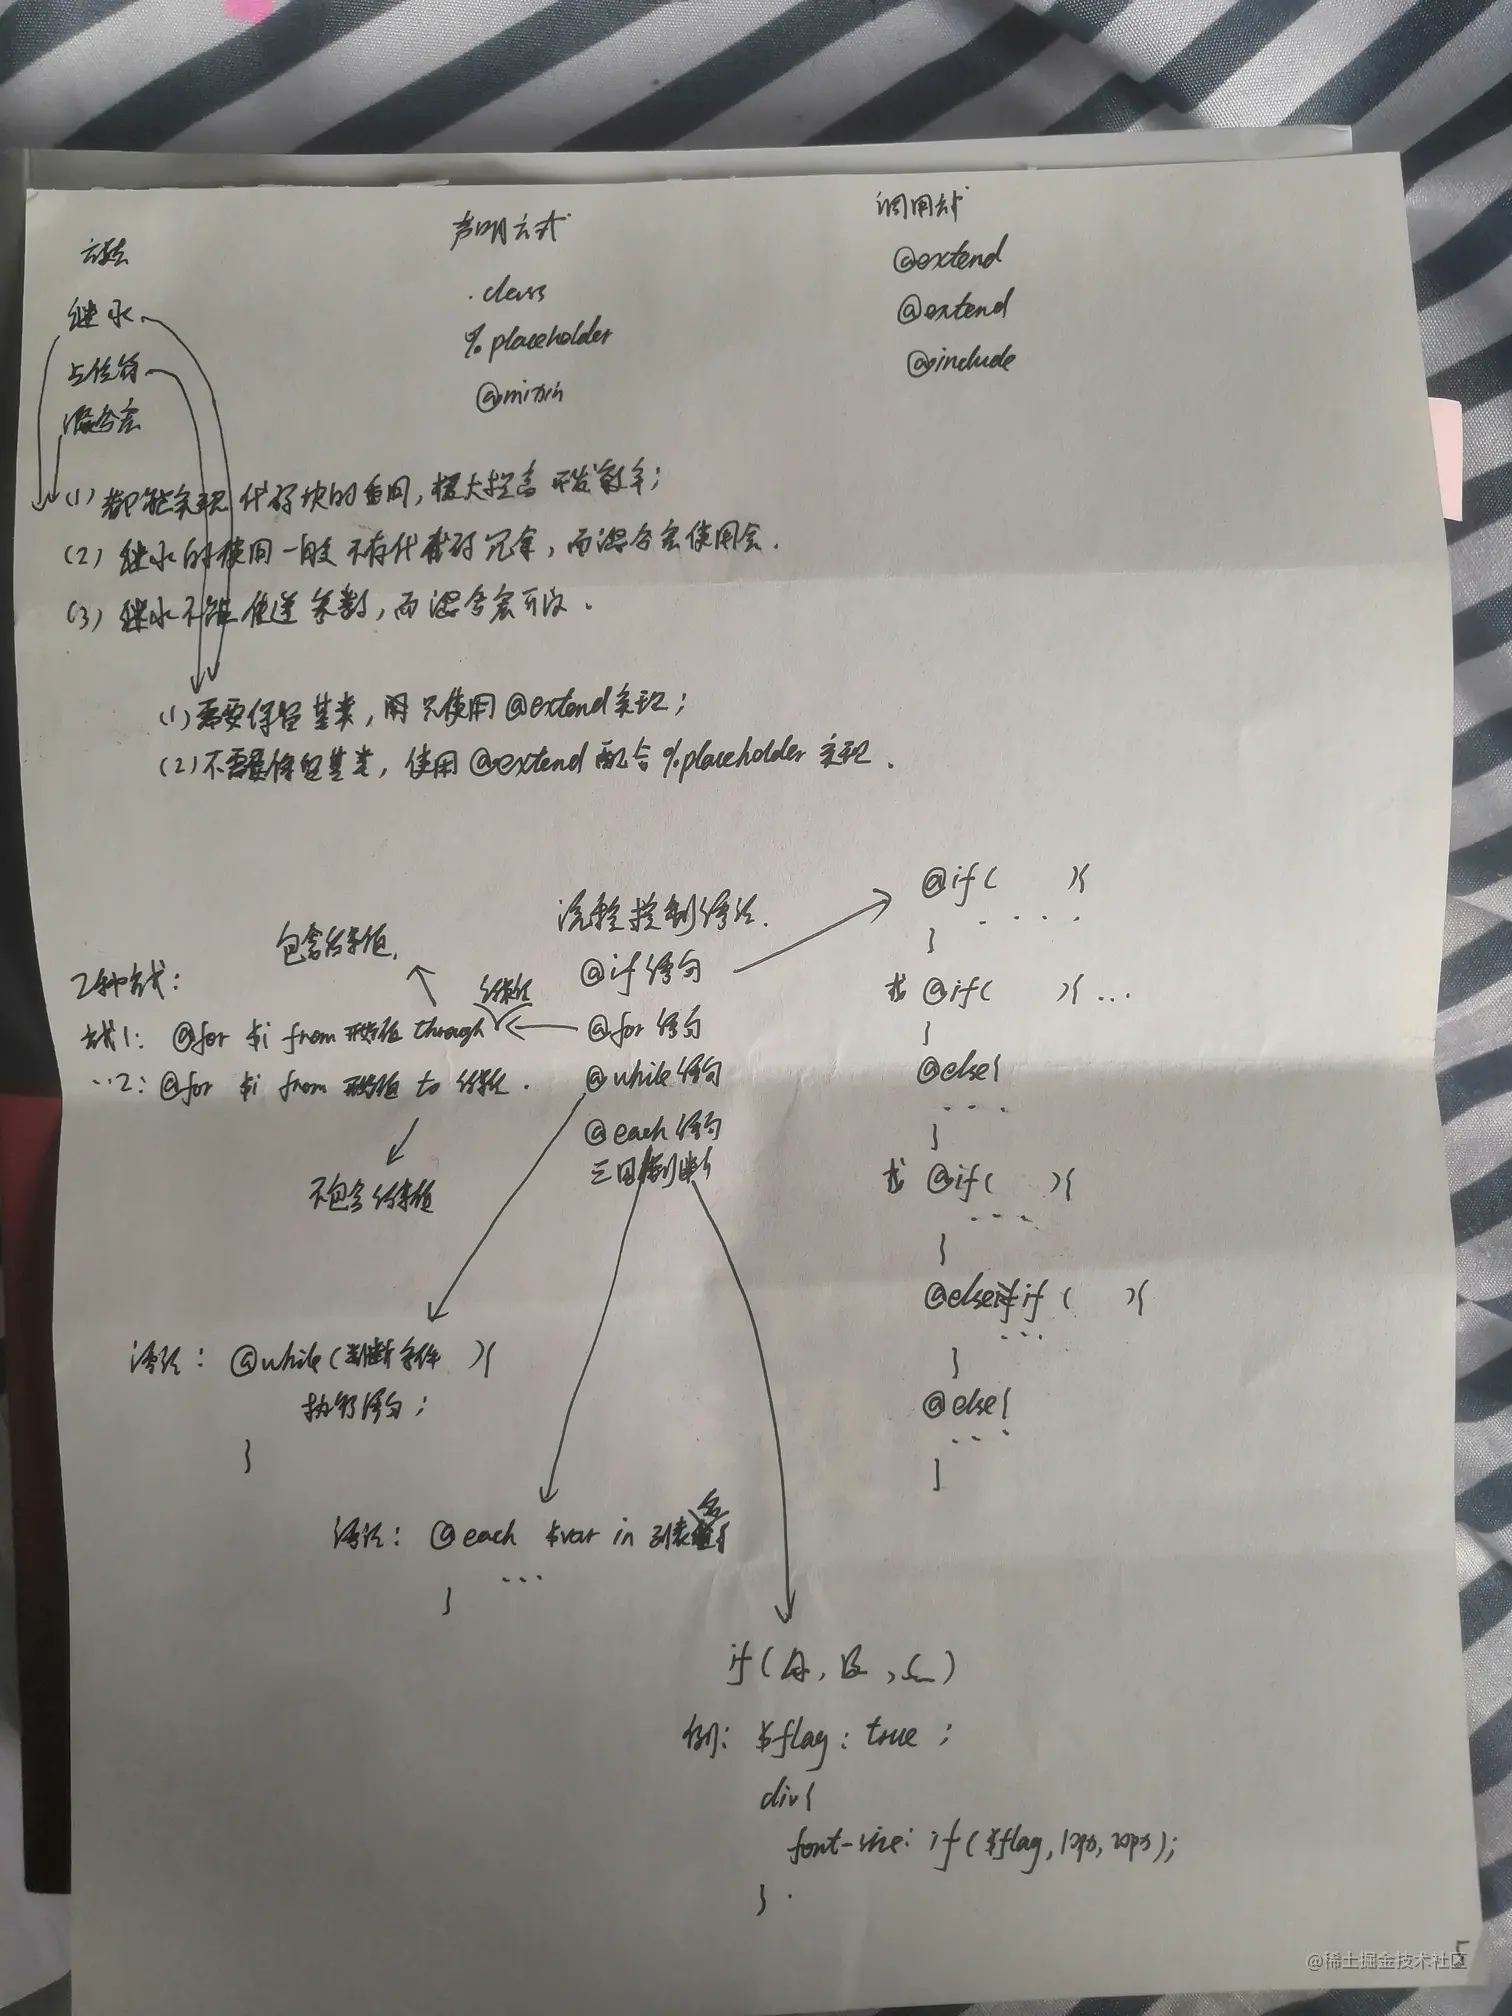 方法 声明方式 调用方式
继承 .class @extend
占位符 %placeholder @extend
混合宏 @mixin @include
(1) 都能实现代码块的重用,极大提高开发效率;
(2) 继承的使用一般不存代码冗余,而混合宏使用会.
(3) 继承不能传递参数,而混合宏可以.
(1) 需要保留基类,用只使用@extend实现;
(2) 不需要保留基类,使用@extend配合%placeholder实现.
流程控制语法.
@if语句
@for语句
@while语句
@each语句
三目判断
包含结束值.
2种方式:
方式1: @for $i from 开始值 through 结束值
..2: @for $i from 开始值 to 结束值.
不包含结束值
@if( ){
....
}
或 @if( ){ ...
}
@else{
....
}
或 @if( ){
....
}
@else if ( ){
...
}
@else{
....
}
语法: @while(判断条件 ){
执行语句;
}
语法: @each $var in 列表名{
...
}
if(A, B, C)
例: $flag: true;
div{
font-size: if($flag, 12px, 20px);
}.
5
@稀土掘金技术社区